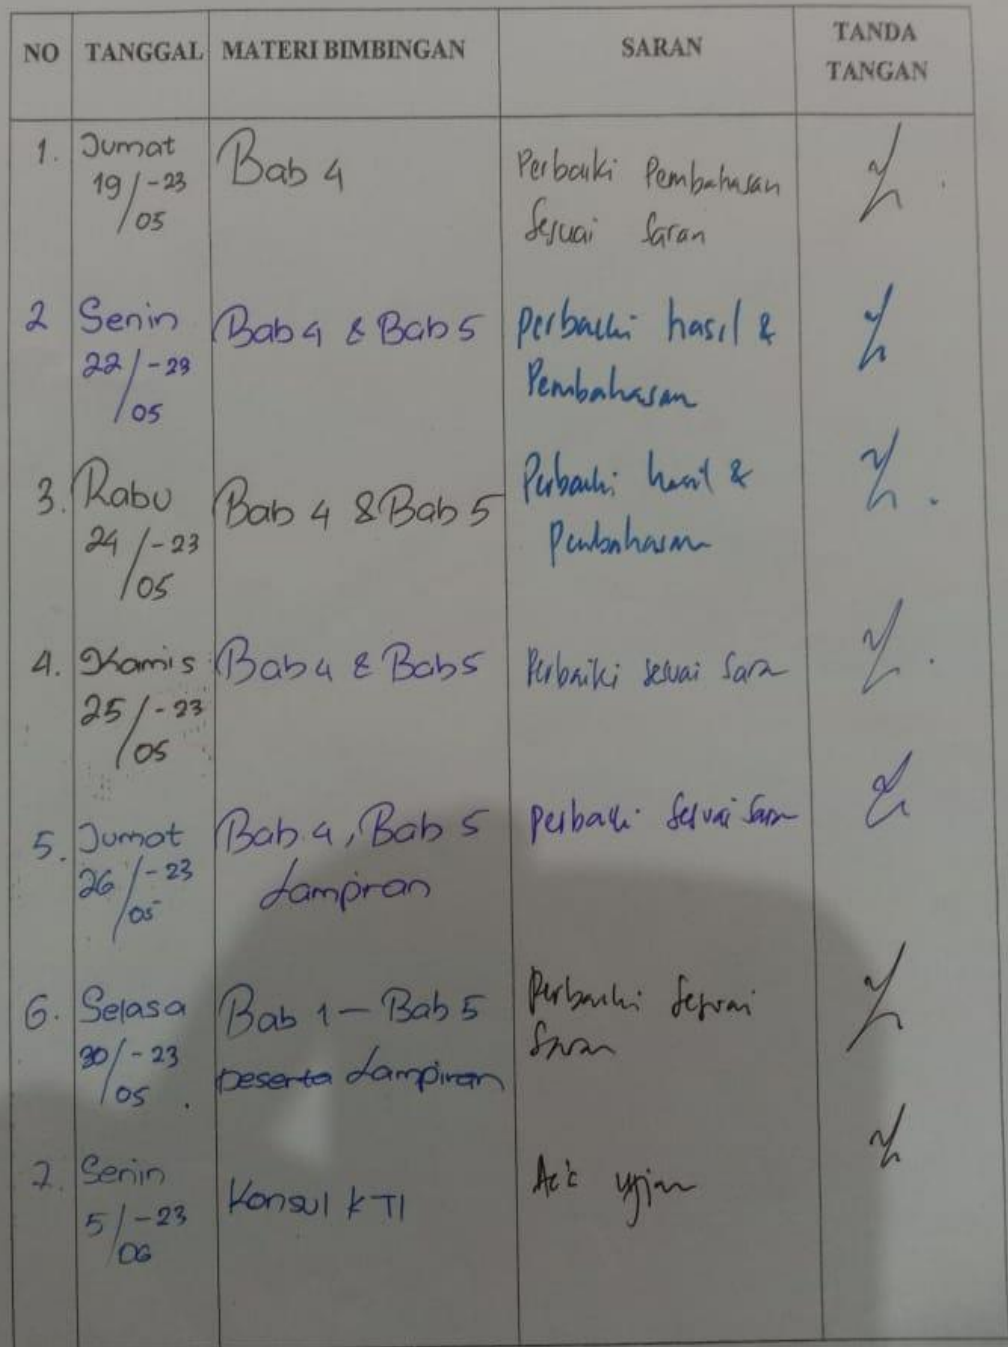 NO TANGGAL MATERI BIMBINGAN SARAN TANDA TANGAN
1. Jumat 19/05-23 Bab 4 Perbaiki Pembahasan
Sesuai Saran
2 Senin 22/05-23 Bab 4 & Bab 5 perbaiki hasil &
Pembahasan
3. Rabu 24/05-23 Bab 4 & Bab 5 Perbaiki hasil &
Pembahasan
4. Kamis 25/05-23 Bab 4 & Bab 5 Perbaiki sesuai Saran
5. Jumat 26/05-23 Bab 4, Bab 5 perbaiki Sesuai Saran
Lampiran
6. Selasa 30/05-23 Bab 1 - Bab 5 Perbaiki Sesuai
beserta Lampiran Saran
7. Senin 5/06-23 Konsul KTI Acc ujian